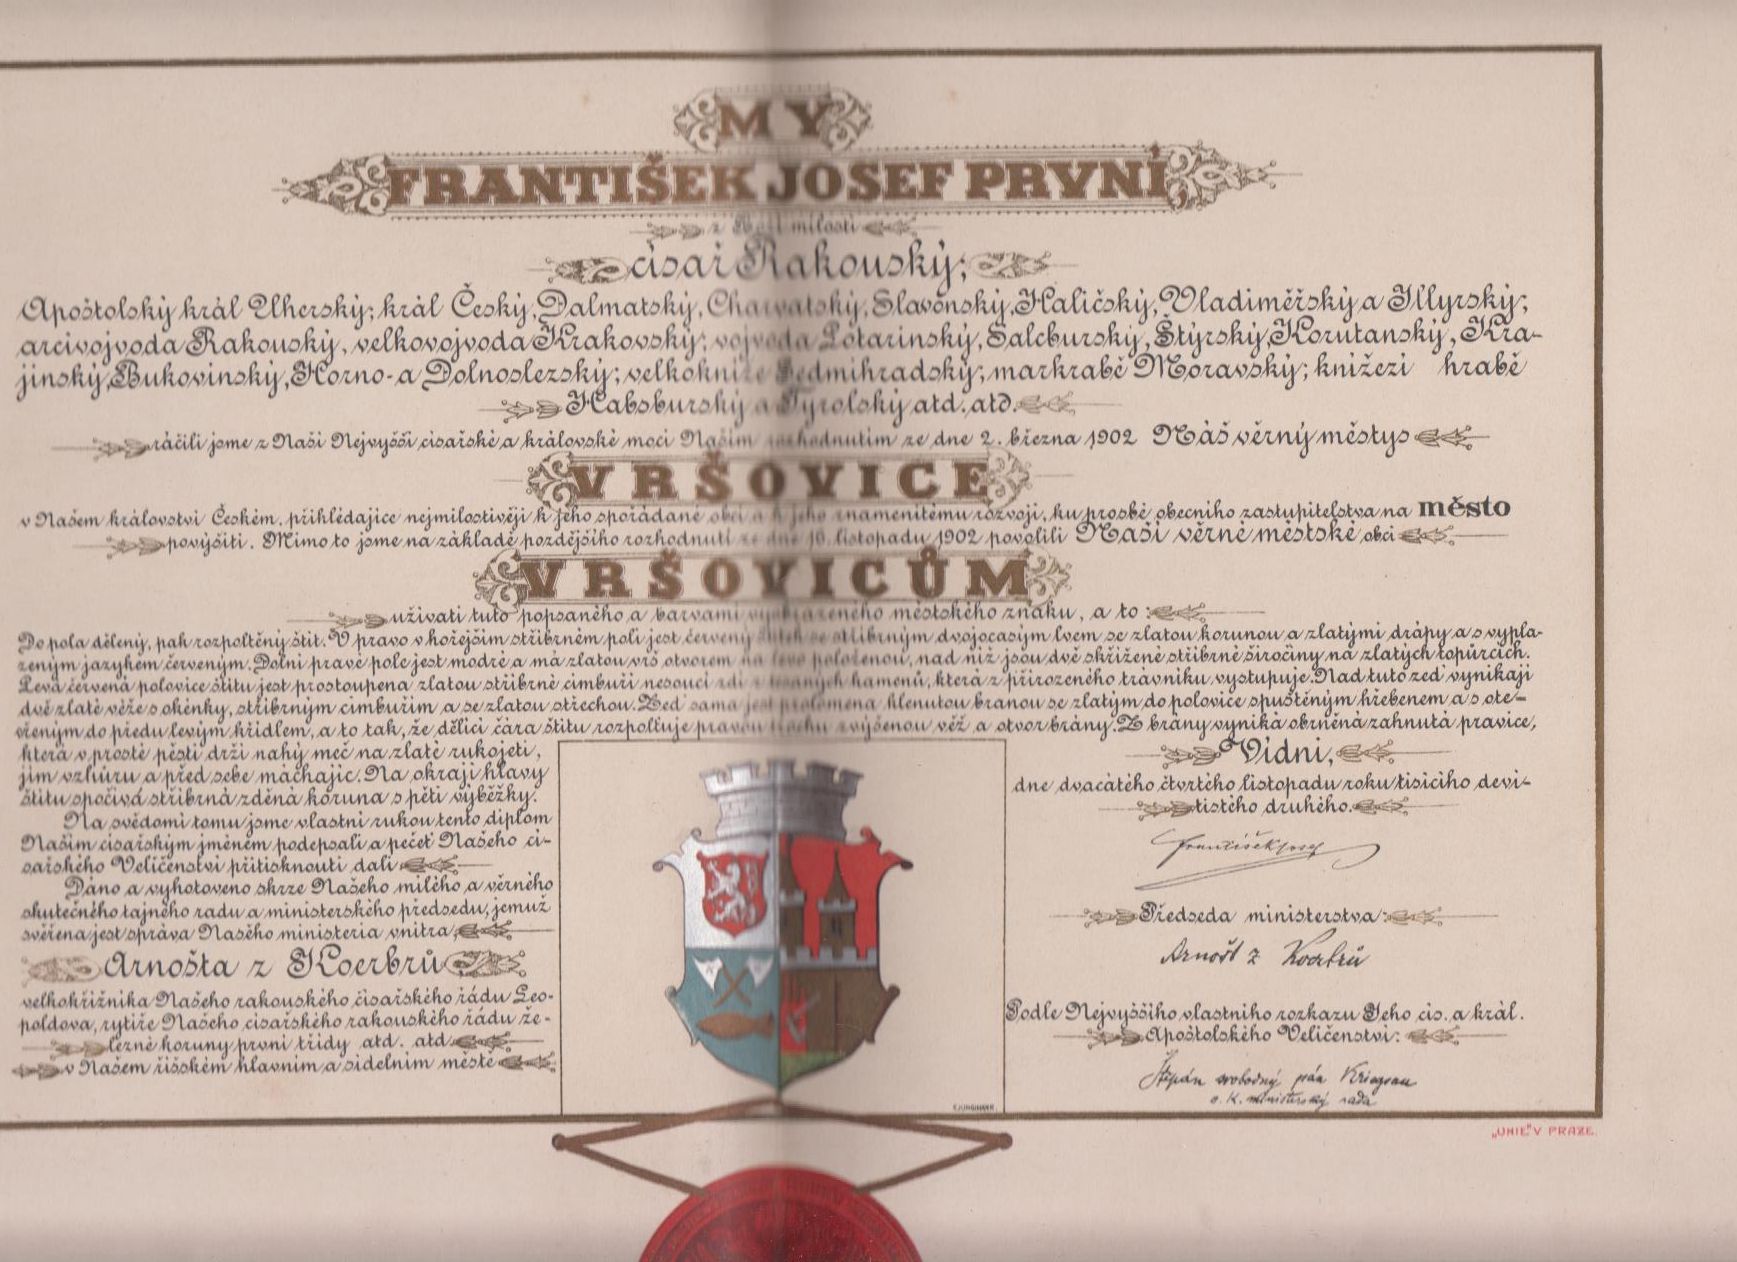 MY
FRANTIŠEK JOSEF PRVNÍ
z Boží milosti
císař Rakouský;
Apoštolský král Uherský; král Český, Dalmatský, Charvatský, Slavonský, Haličský, Vladiměřský a Illyrský;
arcivojvoda Rakouský, velkovojvoda Krakovský; vojvoda Lotarinský, Salcburský, Štýrský, Korutanský, Kra-
jinský, Bukovinský, Horno- a Dolnoslezský; velkokníže Sedmihradský; markrabě Moravský; knížecí hrabě
Habsburský a Tyrolský atd. atd.
ráčili jsme z Naší Nejvyšší císařské a královské moci Naším rozhodnutím ze dne 2. března 1902 Náš věrný městys
VRŠOVICE
v Našem království Českém, přihlédajíce nejmilostivěji k jeho spořádané obci a k jeho znamenitému rozvoji, ku prosbě obecního zastupitelstva na město
povýšiti. Mimo to jsme na základě pozdějšího rozhodnutí ze dne 16. listopadu 1902 povolili Naší věrné městské obci
VRŠOVICŮM
užívati tuto popsaného a barvami vyobrazeného městského znaku, a to:
Do pola dělený, pak rozpoltěný štít. V pravo v hořejším stříbrném poli jest červený štítek se stříbrným dvojocasým lvem se zlatou korunou a zlatými drápy a s vypla-
zeným jazykem červeným. Dolní pravé pole jest modré a má zlatou vrš otvorem na levo položenou, nad níž jsou dvě skřížené stříbrné širočiny na zlatých topůrcích.
Levá červená polovice štítu jest prostoupena zlatou stříbrné cimbuří nesoucí zdí z tesaných kamenů, která z přirozeného trávníku vystupuje. Nad tuto zeď vynikají
dvě zlaté věže s okénky, stříbrným cimbuřím a se zlatou střechou. Zeď sama jest prolomena klenutou branou se zlatým do polovice spuštěným hřebenem a s ote-
vřeným do předu levým křídlem, a to tak, že dělící čára štítu rozpolťuje pravou trochu zvýšenou věž a otvor brány. Z brány vyniká obrněná zahnutá pravice,
která v prosté pěsti drží nahý meč na zlaté rukojeti,
jím vzhůru a před sebe máchajíc. Na okraji hlavy
štítu spočívá stříbrná zděná koruna s pěti výběžky.
Na svědomí tomu jsme vlastní rukou tento diplom
Naším císařským jménem podepsali a pečeť Našeho cí-
sařského Veličenství přitisknouti dali
Dáno a vyhotoveno skrze Našeho milého a věrného
skutečného tajného radu a ministerského předsedu, jemuž
svěřena jest správa Našeho ministeria vnitra,
Arnošta z Koerbrů,
velkokřižníka Našeho rakouského císařského řádu Leo-
poldova, rytíře Našeho císařského rakouského řádu že-
lezné koruny první třídy atd. atd.
v Našem říšském hlavním a sídelním městě
Vídni,
dne dvacátého čtvrtého listopadu roku tisícího deví-
tistého druhého.
František Josef
Předseda ministerstva:
Arnošt z Koerbrů
Podle Nejvyššího vlastního rozkazu Jeho cís. a král.
Apoštolského Veličenství:
Štěpán svobodný pán Kriegsau
c. k. ministerský rada
„UNIE" V PRAZE.